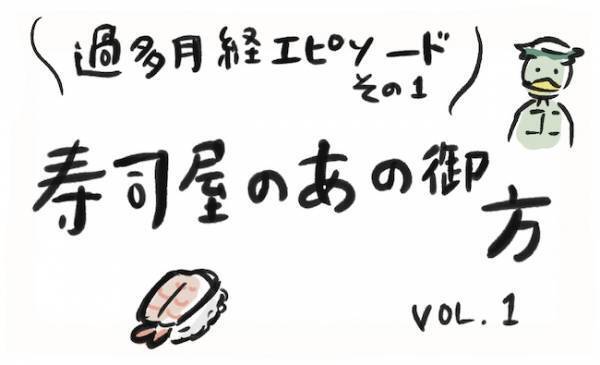 過多月経エピソード
その1
寿司屋のあの御方
VOL.1